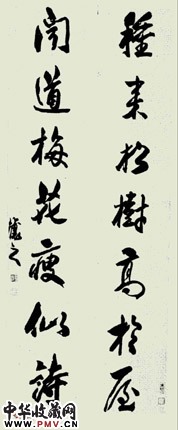 種来松樹高於屋
聞道梅花瘦似詩
中华收藏网
WWW.PMV.CN